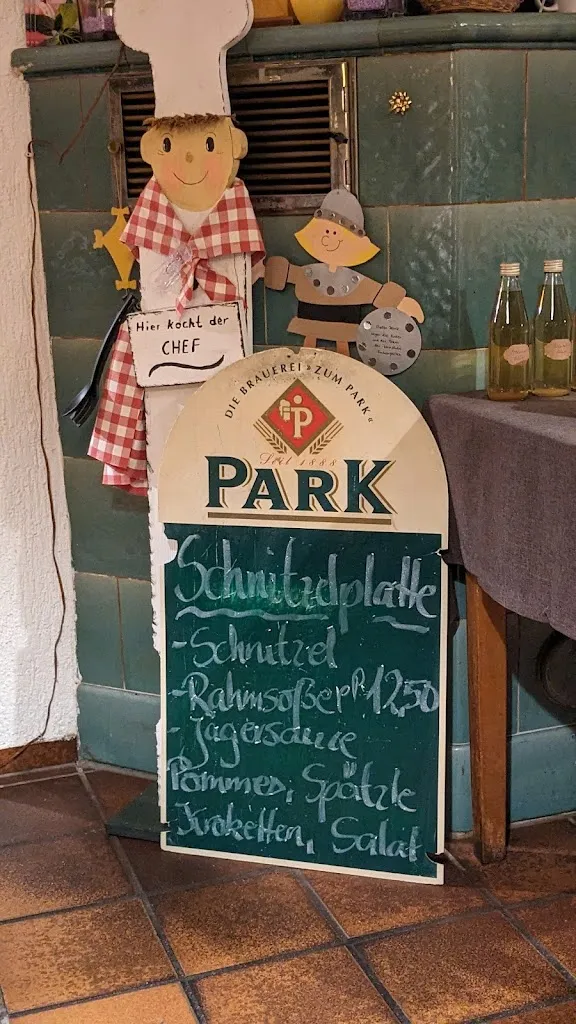 Hier kocht der
CHEF
DIE BRAUEREI »ZUM PARK«
P
Seit 1888
PARK
Schnitzelplatte
- Schnitzel
- Rahmsoße pP 12,50
- Jägersauce
Pommes, Spätzle
Kroketten, Salat